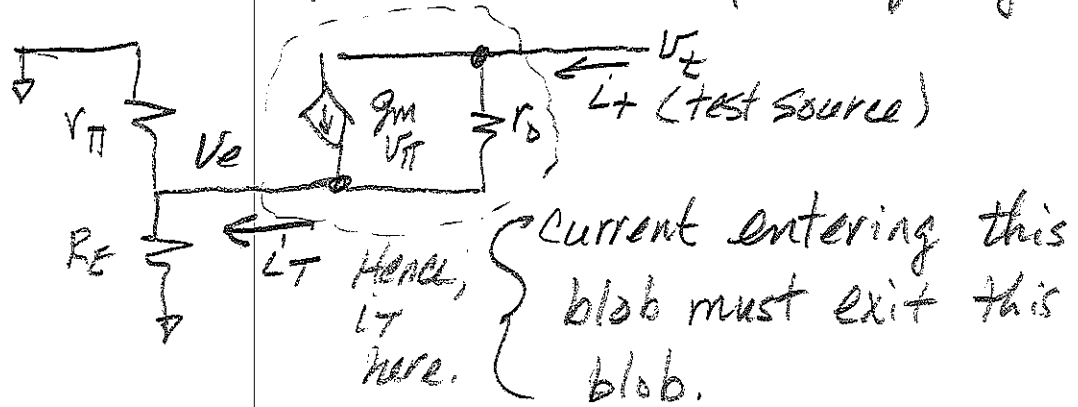 rπ
Ve
gm
vπ
ro
vt
iT (test source)
RE
iT
Hence,
iT
here.
Current entering this
blob must exit this
blob.